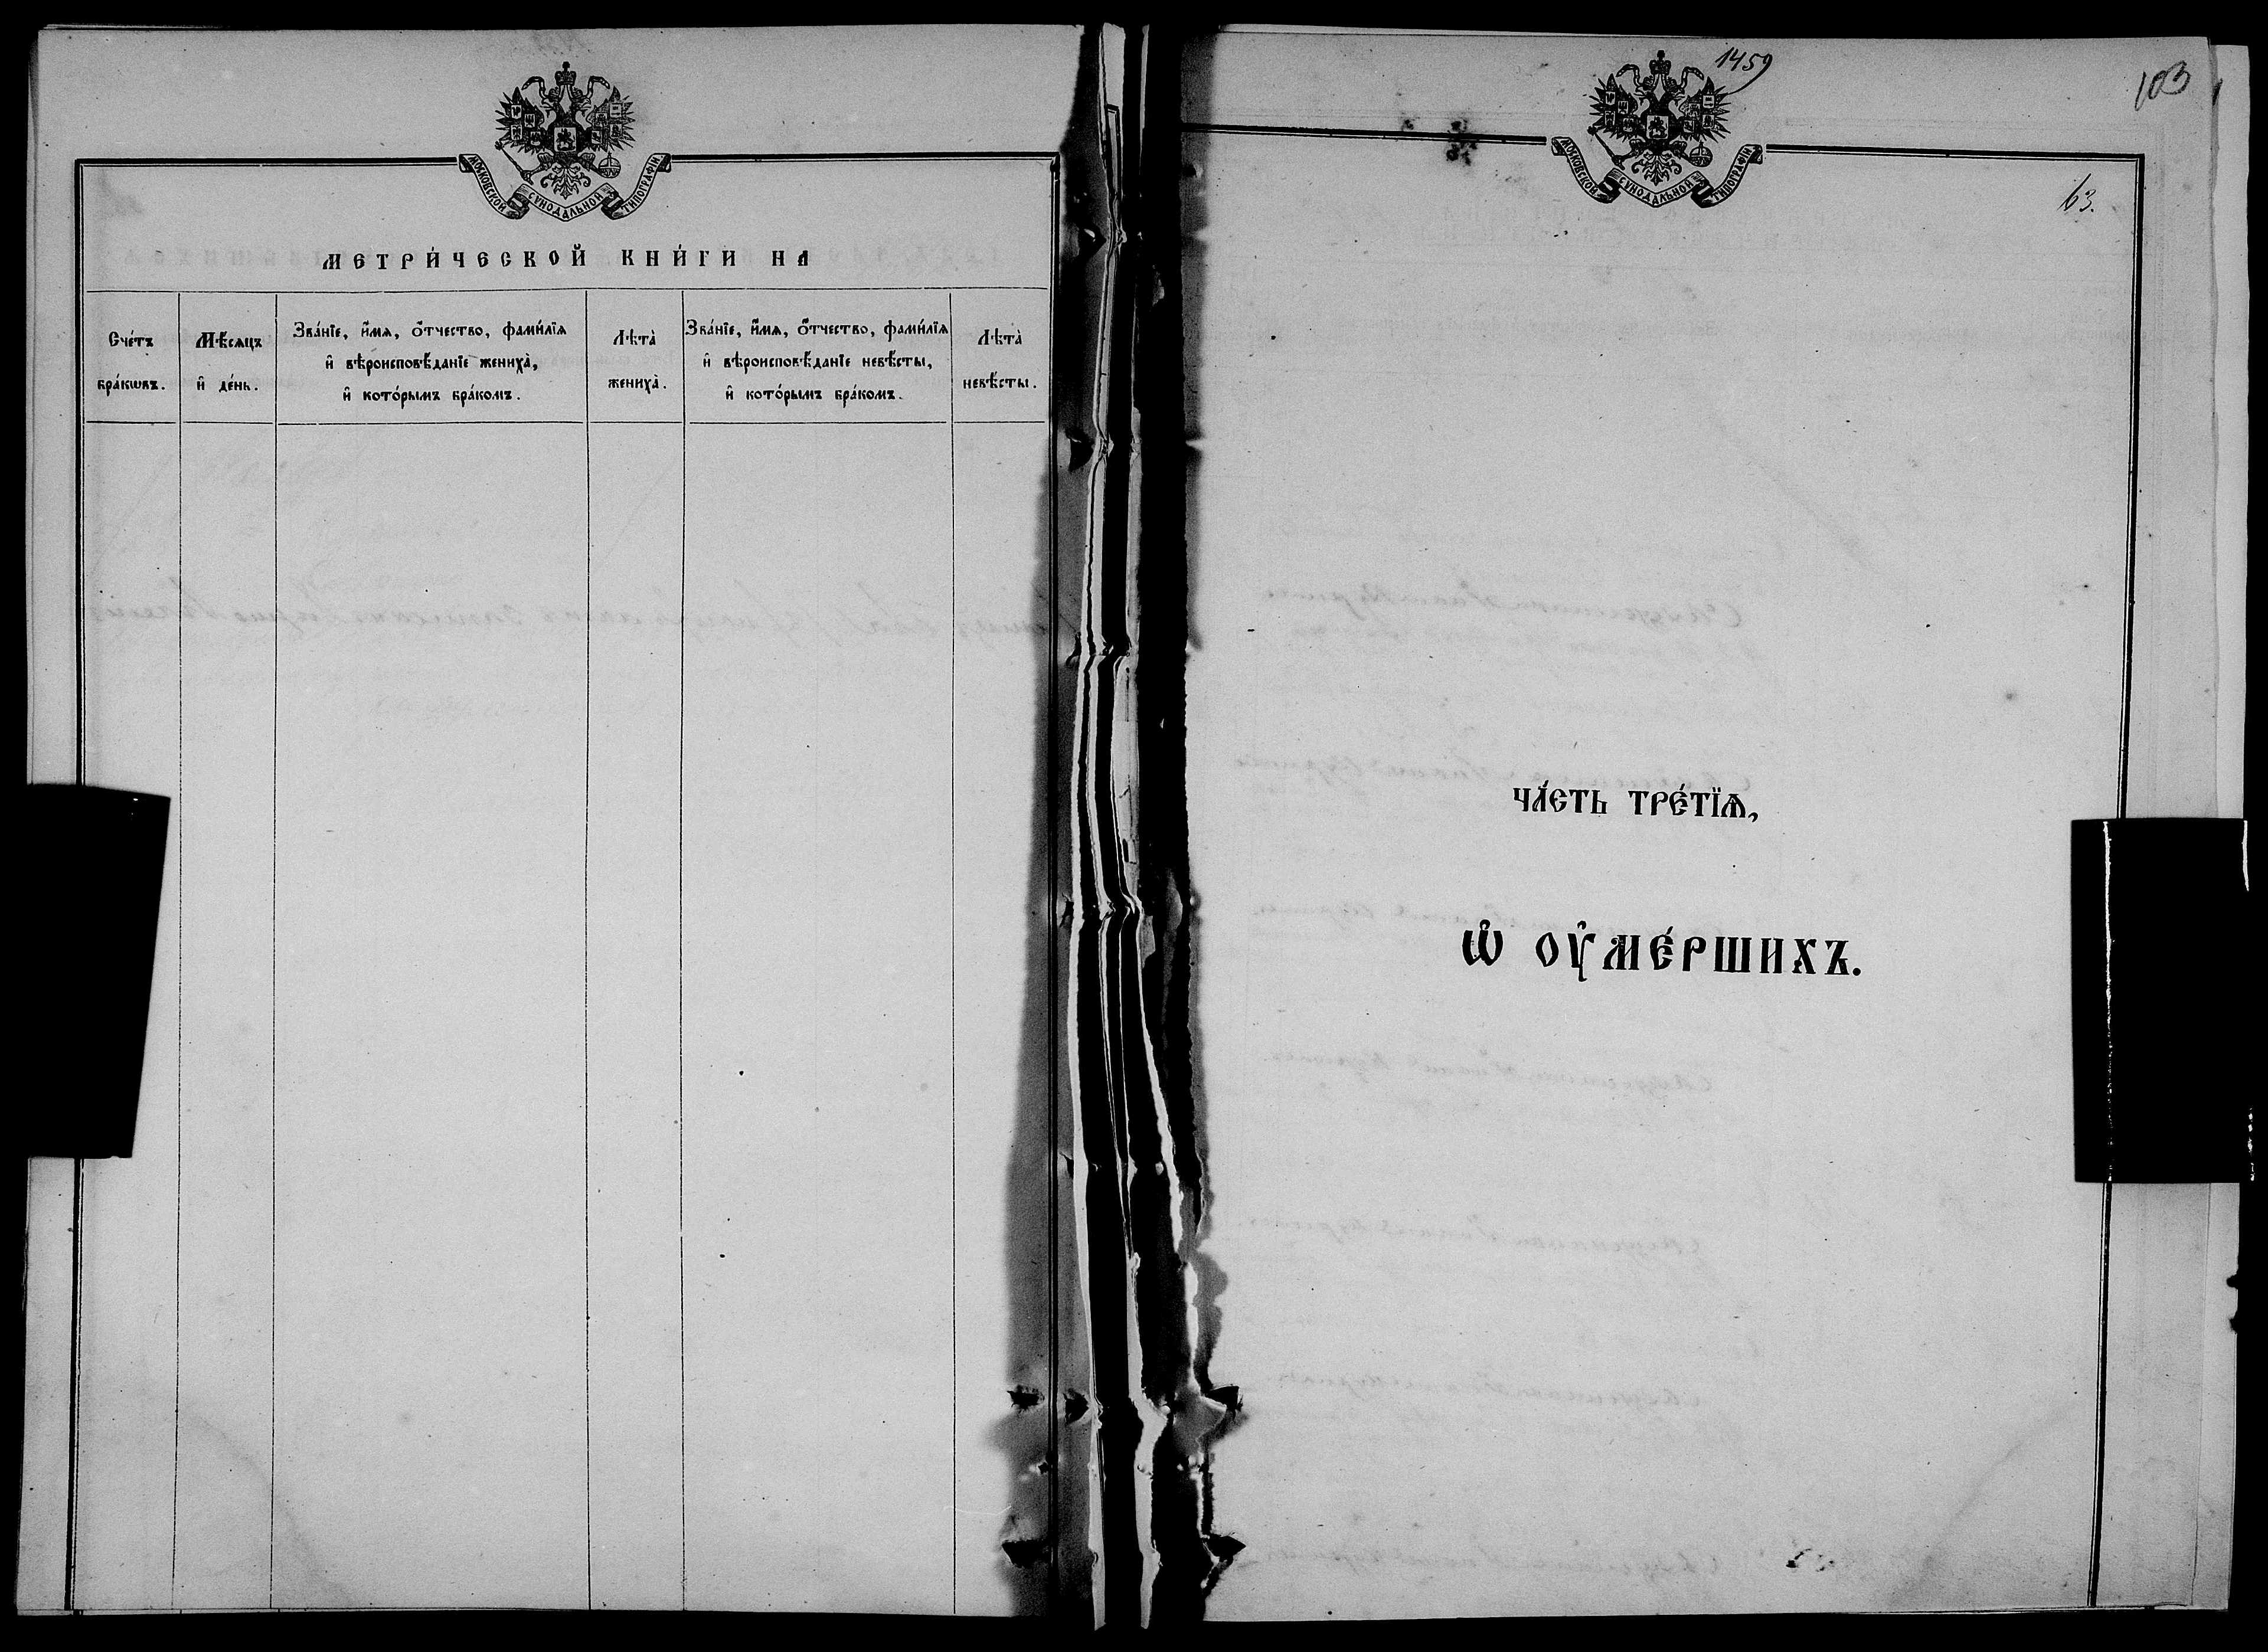 МОСКОВСКОЙ СѴНОДАЛЬНОЙ ТИПОГРАФІИ
МЕТРИ́ЧЕСКОЙ КНИ́ГИ НА
Сче́тъ
бра́кѡвъ.
Мѣ́сяцъ
и҆ де́нь.
Зва́нїе, и҆́мя, ѻ҆́тчество, фами́лїя
и҆ вѣроисповѣ́данїе жениха̀,
и҆ кото́рымъ бра́комъ.
Лѣта̀
жениха̀.
Зва́нїе, и҆́мя, ѻ҆́тчество, фами́лїя
и҆ вѣроисповѣ́данїе невѣ́сты,
и҆ кото́рымъ бра́комъ.
Лѣта̀
невѣ́сты.
1459
103
МОСКОВСКОЙ СѴНОДАЛЬНОЙ ТИПОГРАФІИ
63.
ЧА́СТЬ ТРЕ́ТЇѦ,
Ѡ҆ ОУ҆МЕ́РШИХЪ.